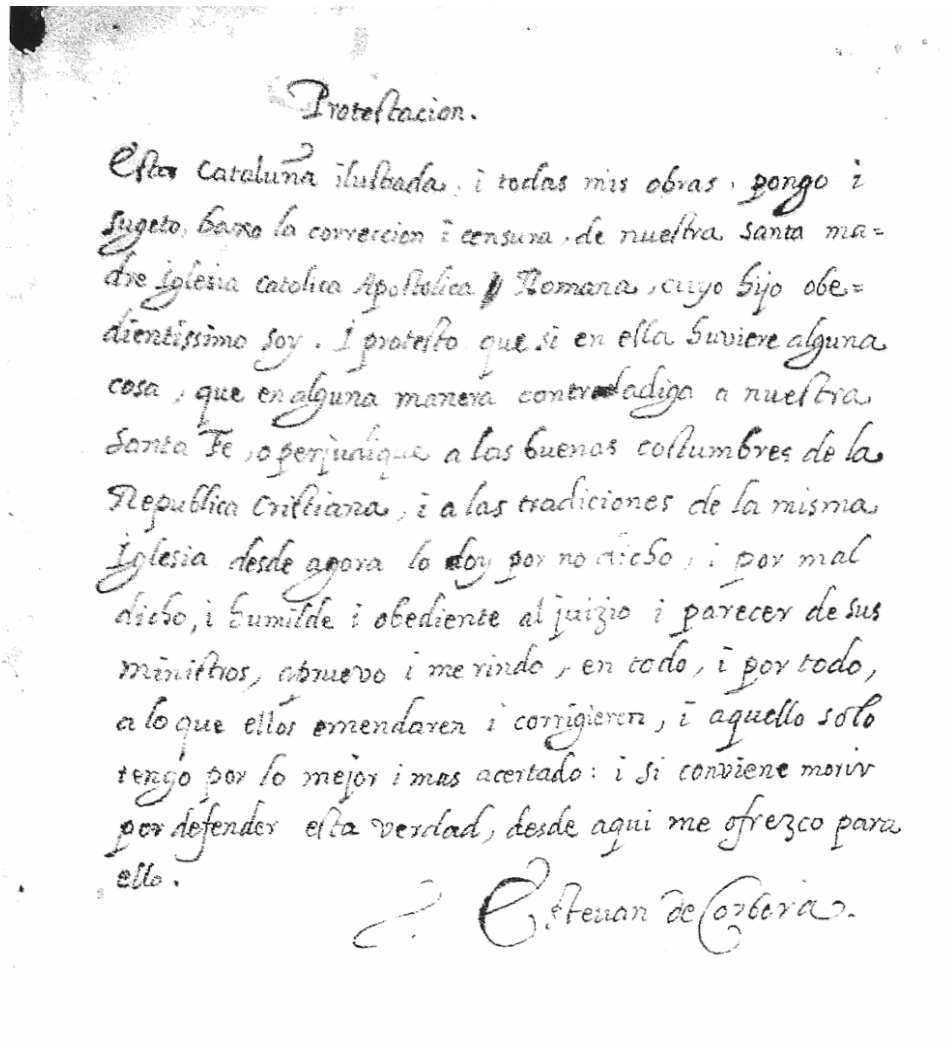 Protestacion.
Esta Cataluña ilustrada, i todas mis obras, pongo i
sugeto, baxo la correccion i censura, de nuestra santa ma=
dre iglesia catolica Apostolica Romana, cuyo hijo obe=
dientissimo soy. I protesto que si en ella huviere alguna
cosa, que en alguna manera contradiga a nuestra
Santa Fe, o perjudique a las buenas costumbres de la
Republica Cristiana, i a las tradiciones de la misma
Iglesia desde agora lo doy por no dicho, i por mal
dicho, i humilde i obediente al juizio i parecer de sus
ministros, abruevo i me rindo, en todo, i por todo,
a lo que ellos emendaren i corrigieren, i aquello solo
tengo por lo mejor i mas acertado: i si conviene morir
por defender esta verdad, desde aqui me ofrezco para
ello.
Estevan de Corbera.